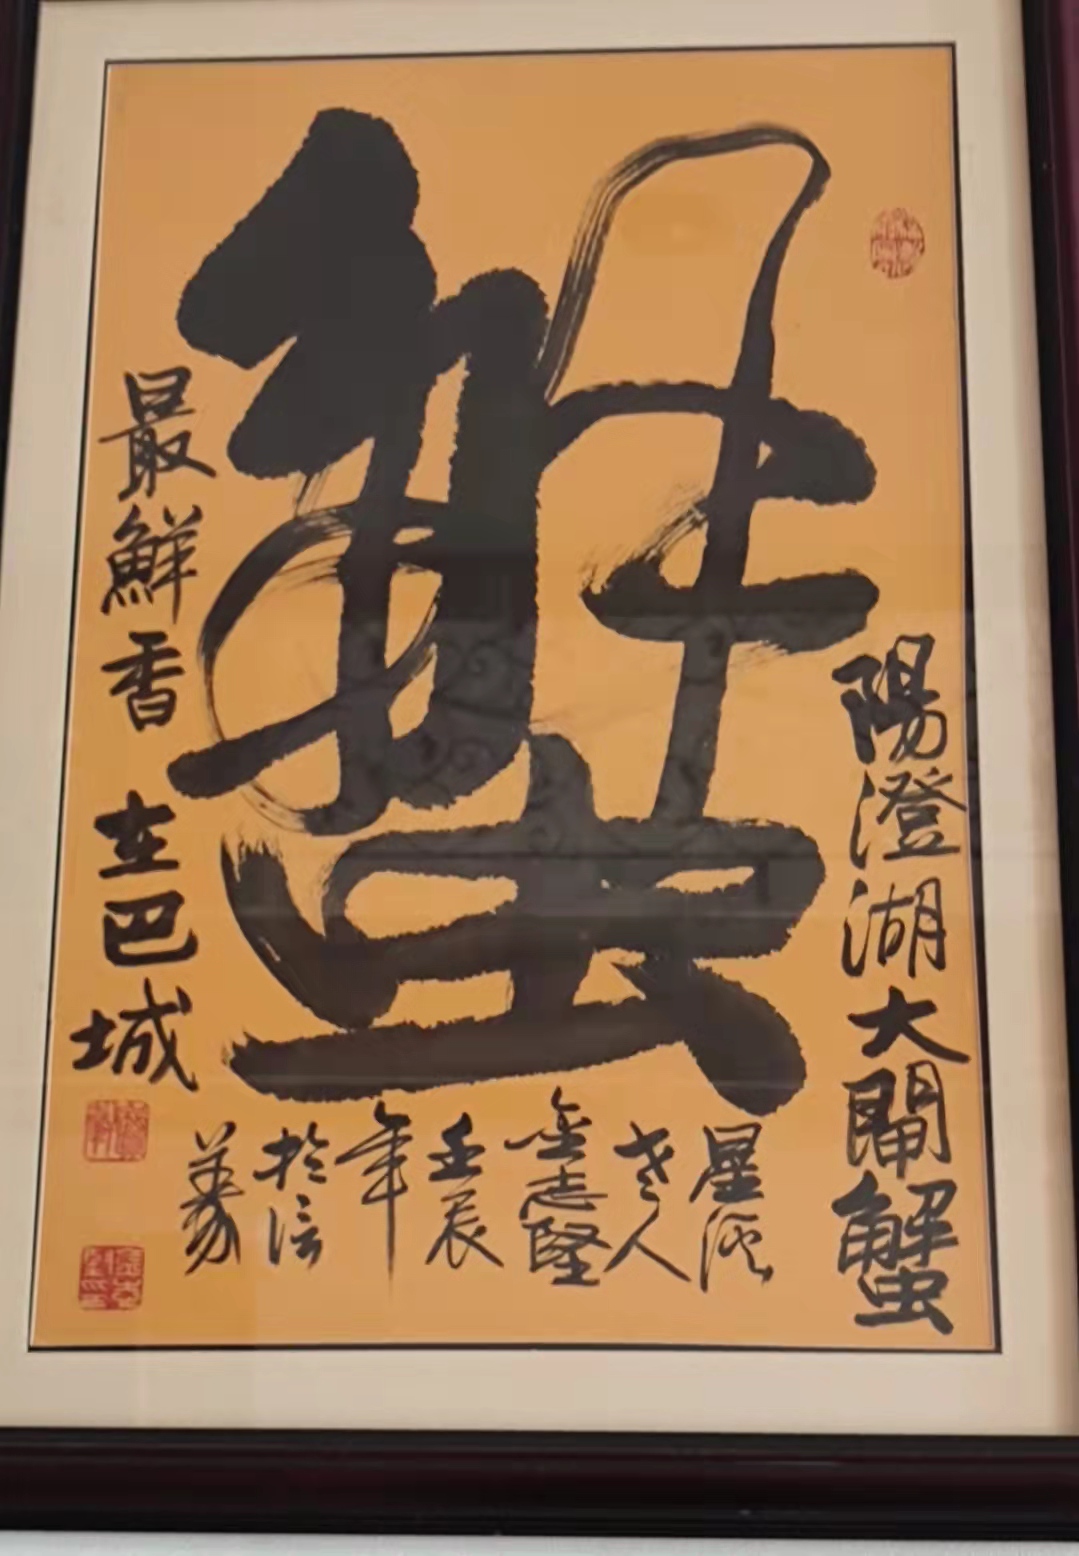 蟹
陽澄湖大閘蟹
最鮮香在巴城
星溪
老人
金志隆
壬辰
年
於信
義